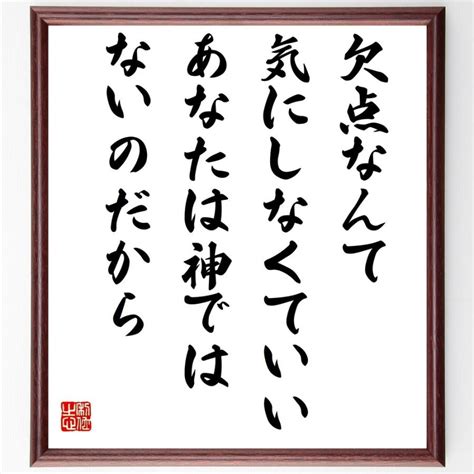 欠点なんて
気にしなくていい
あなたは神では
ないのだから